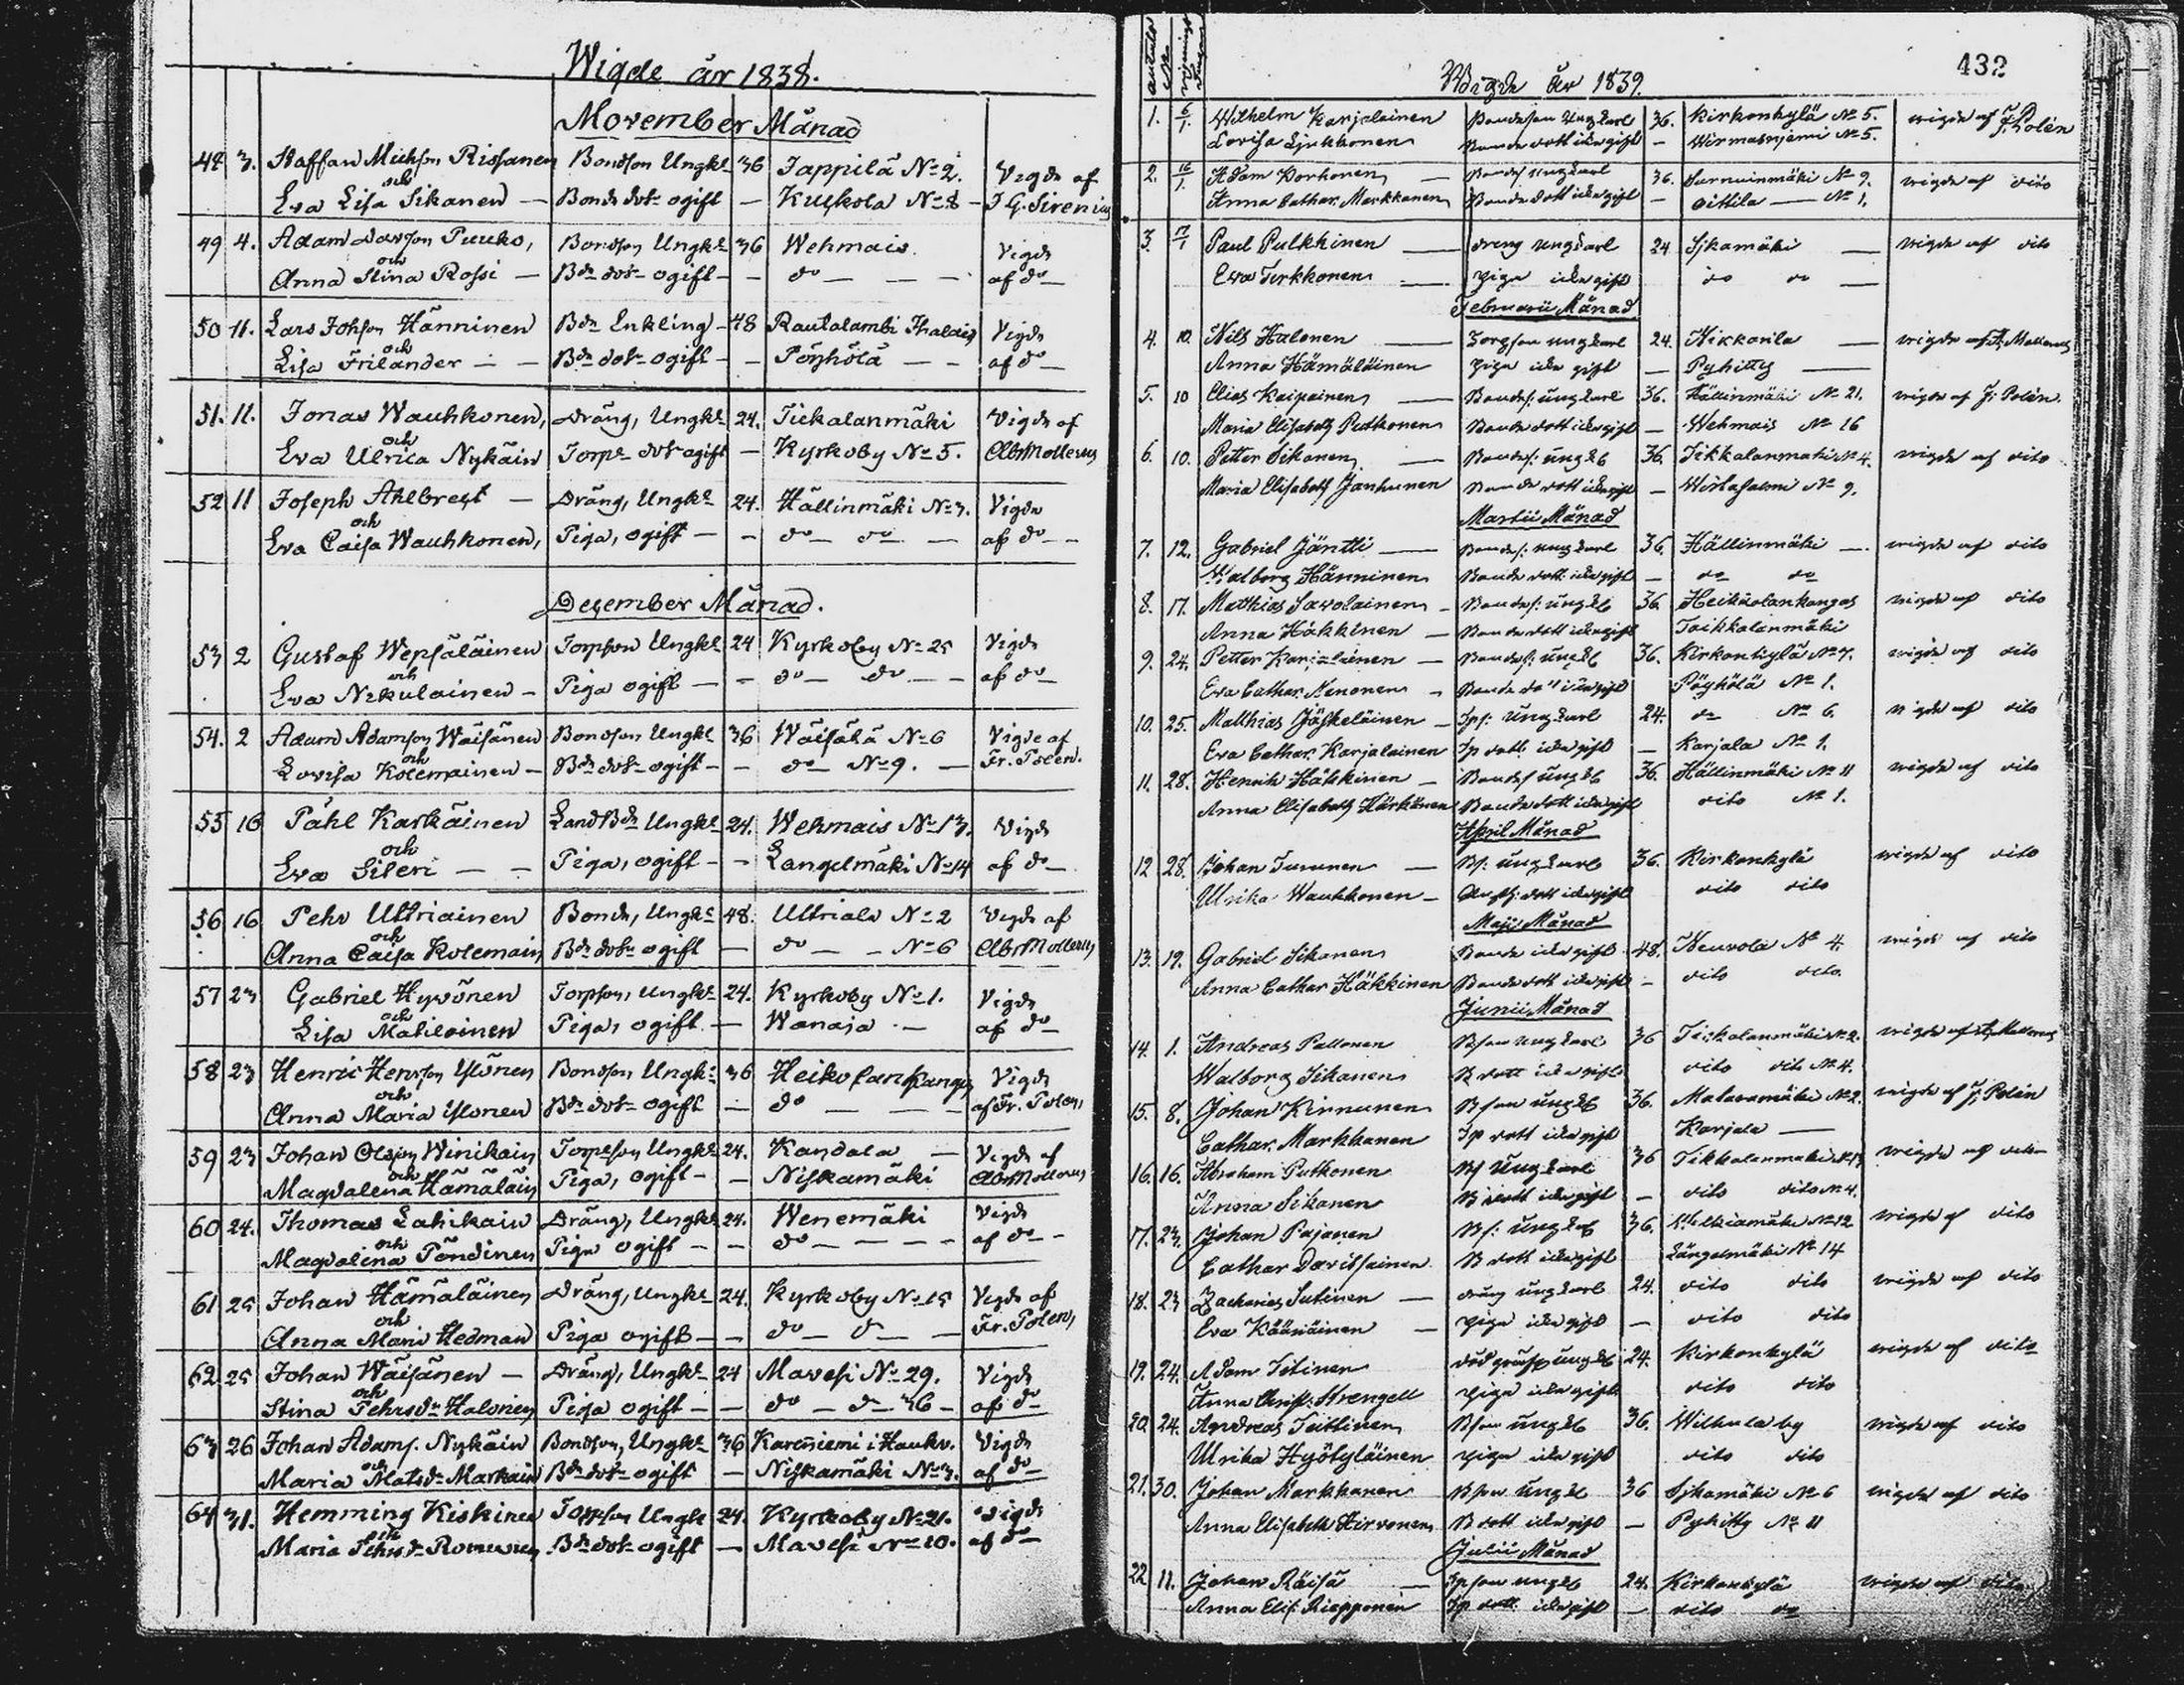 Wigde år 1838.
November Månad
48 3. Staffan Michson Rissanen Bondson Ungkl 36 Jappilä No 2. Vigde af
och
Eva Lisa Sikanen — Bonde dotr ogift — Kuskola No 8 — J G. Sirenius
49 4. Adam Davson Puuko, Bondson Ungkl 36 Wehmais. Vigde
och
Anna Stina Rossi — Bde dotr ogift — — do — — — af do —
50 11. Lars Johson Hänninen Bde Enkling — 48 Rautalambi Vigde
och
Lisa Frilander — — Bde dotr ogift — — Pöyhölä — — af do —
51. 11. Jonas Wauhkonen, Dräng, Ungkl 24. Tiekalanmäki Vigde af
och
Eva Ulrica Nykäin Torpe dotr ogift — Kyrkoby No 5. Alb Mollerus
52 11 Joseph Ahlbregt — Dräng, Ungkl 24. Hällinmäki No 3. Vigde
och
Eva Caisa Wauhkonen, Piga, ogift — — do — do — — af do —
December Månad.
53 2 Gustaf Wepsäläinen Torpson Ungkl 24 Kyrkoby No 25 Vigde
och
Eva Nikulainen — Piga ogift — — do — do — — af do —
54. 2 Adam Adamson Wäisänen Bondson Ungkl 36 Wäisälä No 6 Vigde af
och
Lovisa Kolemainen — Bde dotr ogift — — do — No 9. — Fr. Polen.
55 16 Påhl Karkäinen LandBde Ungkl 24. Wehmais No 13. Vigde
och
Eva Sileri — — Piga, ogift — — Längelmäki No 14 af do —
56 16 Pehr Uttriainen Bonde, Ungkl 48. Uttriala No 2 Vigde af
och
Anna Caisa Kolemain Bde dotr ogift — do — — No 6 Alb Mollerus
57 23 Gabriel Hyvönen Torpson, Ungkl 24. Kyrkoby No 1. Vigde
och
Lisa Matilainen Piga, ogift. — Wanaja — af do —
58 23 Henric Henrson Ylönen Bondson Ungkl 36 Heikolankangas Vigde
och
Anna Maria Ylonen Bde dotr ogift — do — — — af Fr. Polen,
59 23 Johan Olofson Winikain Torpeson Ungkl 24. Kandala — Vigde af
och
Magdalena Hämäläin Piga, ogift — — Niskamäki Alb Mollerus
60 24. Thomas Lahikain Dräng, Ungkl 24. Wenemäki Vigde
och
Magdalena Pöndinen Piga ogift — — do — — — — af do —
61 25 Johan Hämäläinen Dräng, Ungkl 24. Kyrkoby No 15 Vigde af
och
Anna Maria Hedman Piga ogift — — do — do — — Fr. Polen,
62 25 Johan Wäisänen — Dräng, Ungkl 24 Mavesi No 29. Vigde
och
Stina Pehrsdr Halonen Piga ogift — — do — do — 36 — af do —
63 26 Johan Adams. Nykäin Bondson, Ungkl 36 Karenniemi i Haukv. Vigde
och
Maria Matsdr Markain Bde dotr ogift — Niskamäki No 3. af do —
64 31. Hemming Kiskinen Torpson Ungkl 24. Kyrkoby No 21. Vigde
och
Maria Pehrsdr Bde dotr ogift — Mavesi No 10. af do —
432
Wigde år 1839.
1. 6/1. Wilhelm Karjalainen Bondeson Ungkarl 36. Kirkonkylä No 5. vigde af F. Polén
Lovisa Bonde dott icke gift — Wirmasniemi No 5.
2. 16/1. Adam Korhonen — Bondes ungkarl 36. Surnuinmäki No 9. vigde af dito
Anna Cathar. Markkanen Bonde dott icke gift — Pittila — No 1.
3. 17/1 Paul Pulkkinen — dreng ungkarl 24 Sjkamäki — vigde af dito
Eva Turkkonen — piga icke gift do do —
Februarii Månad
4. 10. Nils Halonen — Torpson ungkarl 24. Kikkarila — vigde af A. Mollerus
Anna Hämäläinen piga icke gift — Pyhitty —
5. 10 Elias Kaipainen — Bondes: ungkarl 36. Hällinmäki No 21. vigde af F: Polén.
Maria Elisabeth Putkonen Bonde dott icke gift — Wehmais No 16
6. 10. Petter Sikanen — Bondes: ungkl 36. Tikkalanmäki No 4. vigde af dito
Maria Elisabeth Janhunen Bonde dott icke gift — Wirtasalmi No 9.
Martii Månad
7. 12. Gabriel Jäntti — Bondes: ungkarl 36. Hällinmäki —. vigde af dito
Walborg Hänninen Bonde dott icke gift — do do
8. 17. Mathias Savolainen — Bondes: ungkl 36. Heikkolankangas vigde af dito
Anna Häkkinen — Bonde dott icke gift Toikkalanmäki
9. 24. Petter Karjalainen — Bondes: ungkl 36. Kirkonkylä No 7. vigde af dito
Eva Cathar. Nenonen — Bonde dott icke gift Pöyhölä No 1.
10. 25. Matthias Jäskeläinen — Tps: Ungkarl 24. do No 6. vigde af dito
Eva Cathar. Karjalainen Tp dott. icke gift — Karjala No 1.
11. 28. Henrik Häkkinen — Bondes ungkl 36. Hällinmäki No 11 vigde af dito
Anna Elisabeth Härkönen Bonde dott icke gift dito No 1.
April Månad
12 28. Johan Turunen — Bs: ungkarl 36. Kirkonkylä vigde af dito
Ulrika Waukkonen — dott icke gift dito dito
Maji Månad
13. 19. Gabriel Sikanen Bonde icke gift 48. Neuvola No 4. vigde af dito
Anna Cathar Häkkinen Bonde dott icke gift — dito dito.
Junii Månad
14. 1. Andreas Pallonen Bson ungkarl 36 Tickalanmäki No 2. vigde af A. Mollerus
Walborg Sikanen B dott icke gift dito dito No 4.
15. 8. Johan Kinnunen Bson ungkl 36. Malaramäki No 2. vigde af F. Polén
Cathar. Markkanen Tp dott icke gift Karjala —
16. 16. Abraham Putkonen Bs Ungkarl 36 Tikkalanmäki vigde af dito
Anna Sikanen B dott icke gift — dito dito No 4.
17. 23. Johan Pajanen Bs: ungkl 36. No 12 vigde af dito
Cathar Davitsainen B dott icke gift Längelmäki No 14
18. 23 Zacharias Sutinen — dräng ungkarl 24. dito dito vigde af dito
Eva Kääriäinen — piga icke gift — dito dito
19. 24. Adam Titinen ungkl 24. Kirkonkylä vigde af dito
Anna Christ: Strengell piga icke gift dito dito
20. 24. Andreas Teittinen Bson ungkl 36. Wilhula by vigde af dito
Ulrika Hyötyläinen piga icke gift dito dito
21. 30. Johan Markkanen Bson Ungkl 36 Sjkamäki No 6 vigde af dito
Anna Elisabeth Hirvonen B dott icke gift — Pyhitty No 11
Julii Månad
22 11. Johan Räisä — Tpson ungkl 24. Kirkonkylä vigde af dito
Anna Elis: Riepponen Tp dott. icke gift — dito do